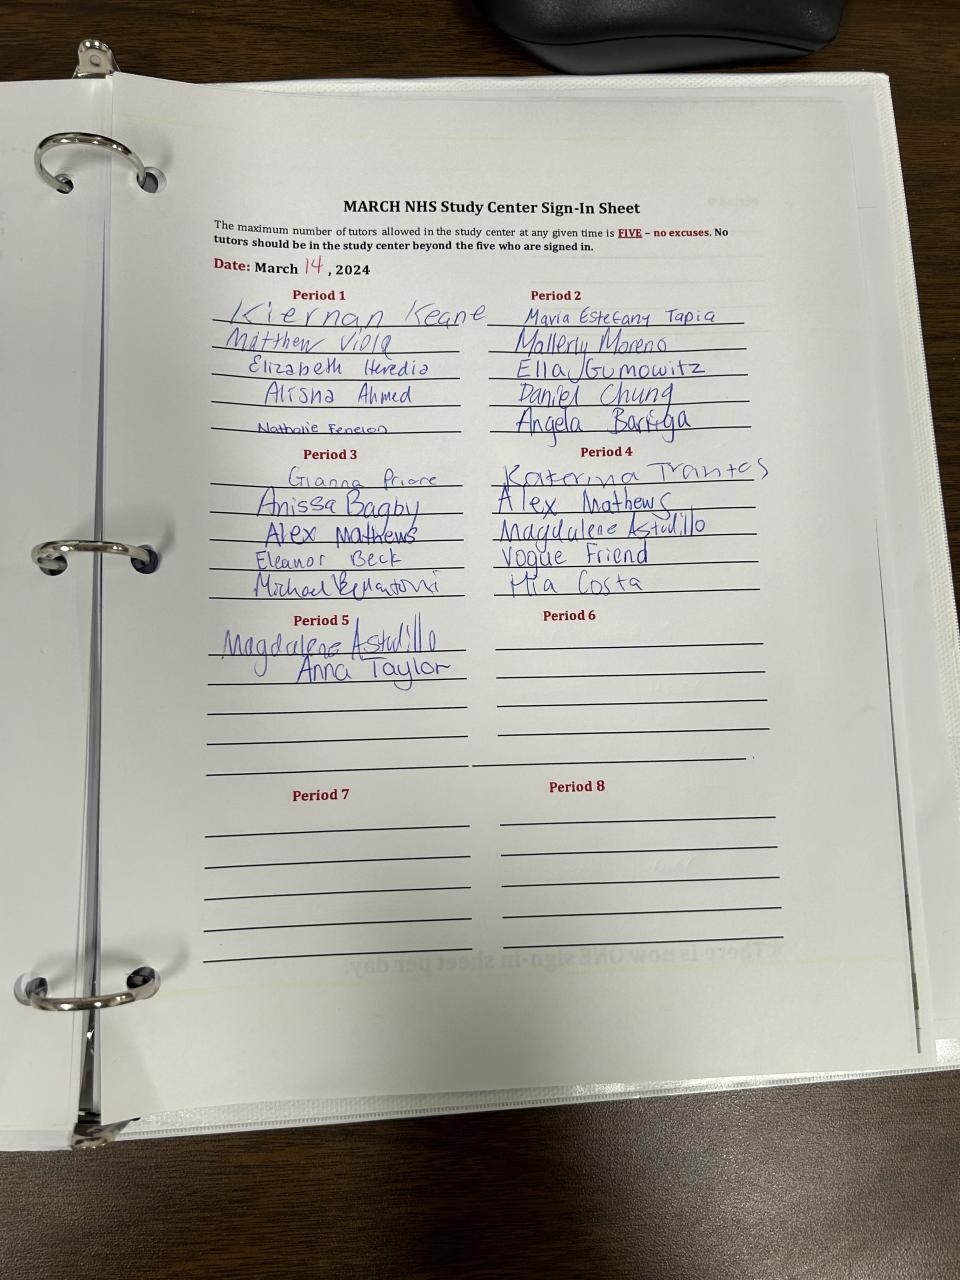 MARCH NHS Study Center Sign-In Sheet
The maximum number of tutors allowed in the study center at any given time is FIVE – no excuses. No
tutors should be in the study center beyond the five who are signed in.
Date: March 14, 2024
Period 1
Kiernan Keane
Matthew Viola
Elizabeth Heredia
Alisha Ahmed
Nathalie Fenelon
Period 2
Maria Estefany Tapia
Mallerly Moreno
Ella Gumowitz
Daniel Chung
Angela Barriga
Period 3
Gianna Priore
Anissa Bagby
Alex Mathews
Eleanor Beck
Michael Bellantoni
Period 4
Katerina Trantes
Alex Mathews
Magdalene Astudillo
Vogue Friend
Mia Costa
Period 5
Magdalene Astudillo
Anna Taylor
Period 6
Period 7
Period 8
*There is now ONE sign-in sheet per day.